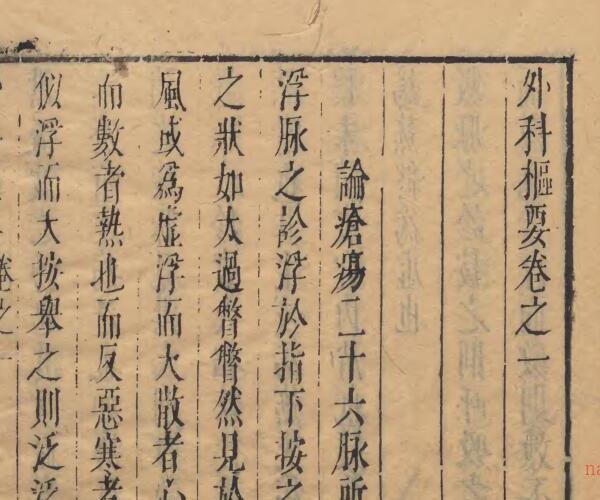 外科樞要卷之一
論瘡瘍二十六脉所
浮脉之診浮於指下按之
之狀如太過瞥瞥然見於
風或爲虛浮而大散者心
而數者熱也而反惡寒者
似浮而大按舉之則泛泛
卷之一
na